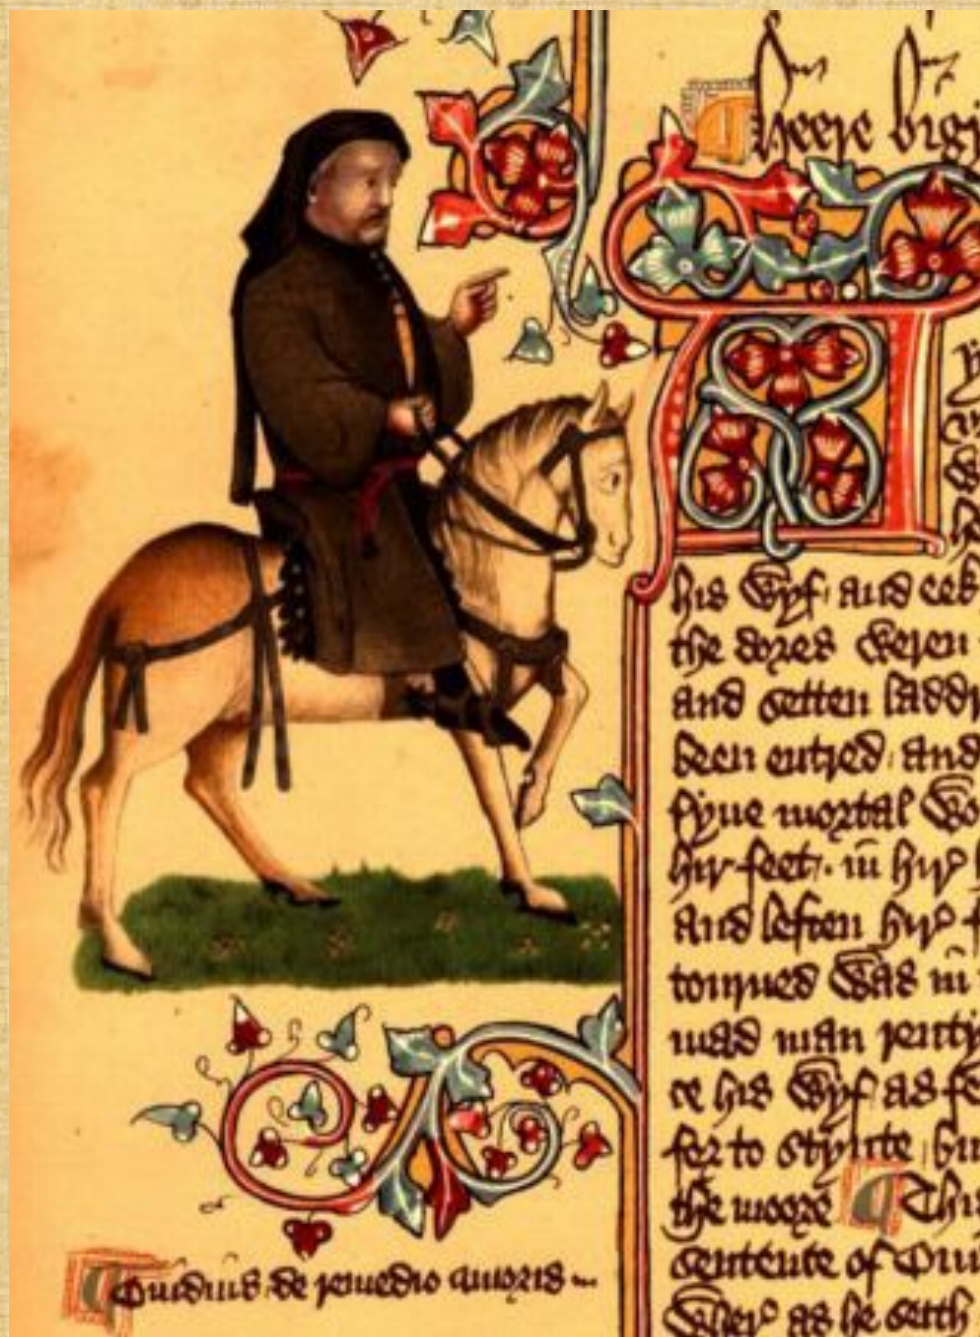 heere bigy
his wyf and eek
the dores weren
and setten ladd
been entred and
fyue mortal wo
hir feet in hir h
and leften hir f
tonnes was in
mad man rentyn
ce his wyf as fe
for to stynte bu
the moore Thi
sentence of Oui
wher as he seith
Ouidius de remedio amoris